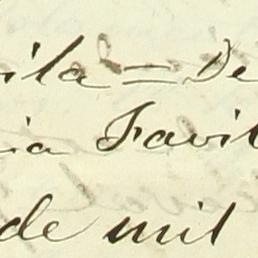 ila = De
ia Favil
de mil